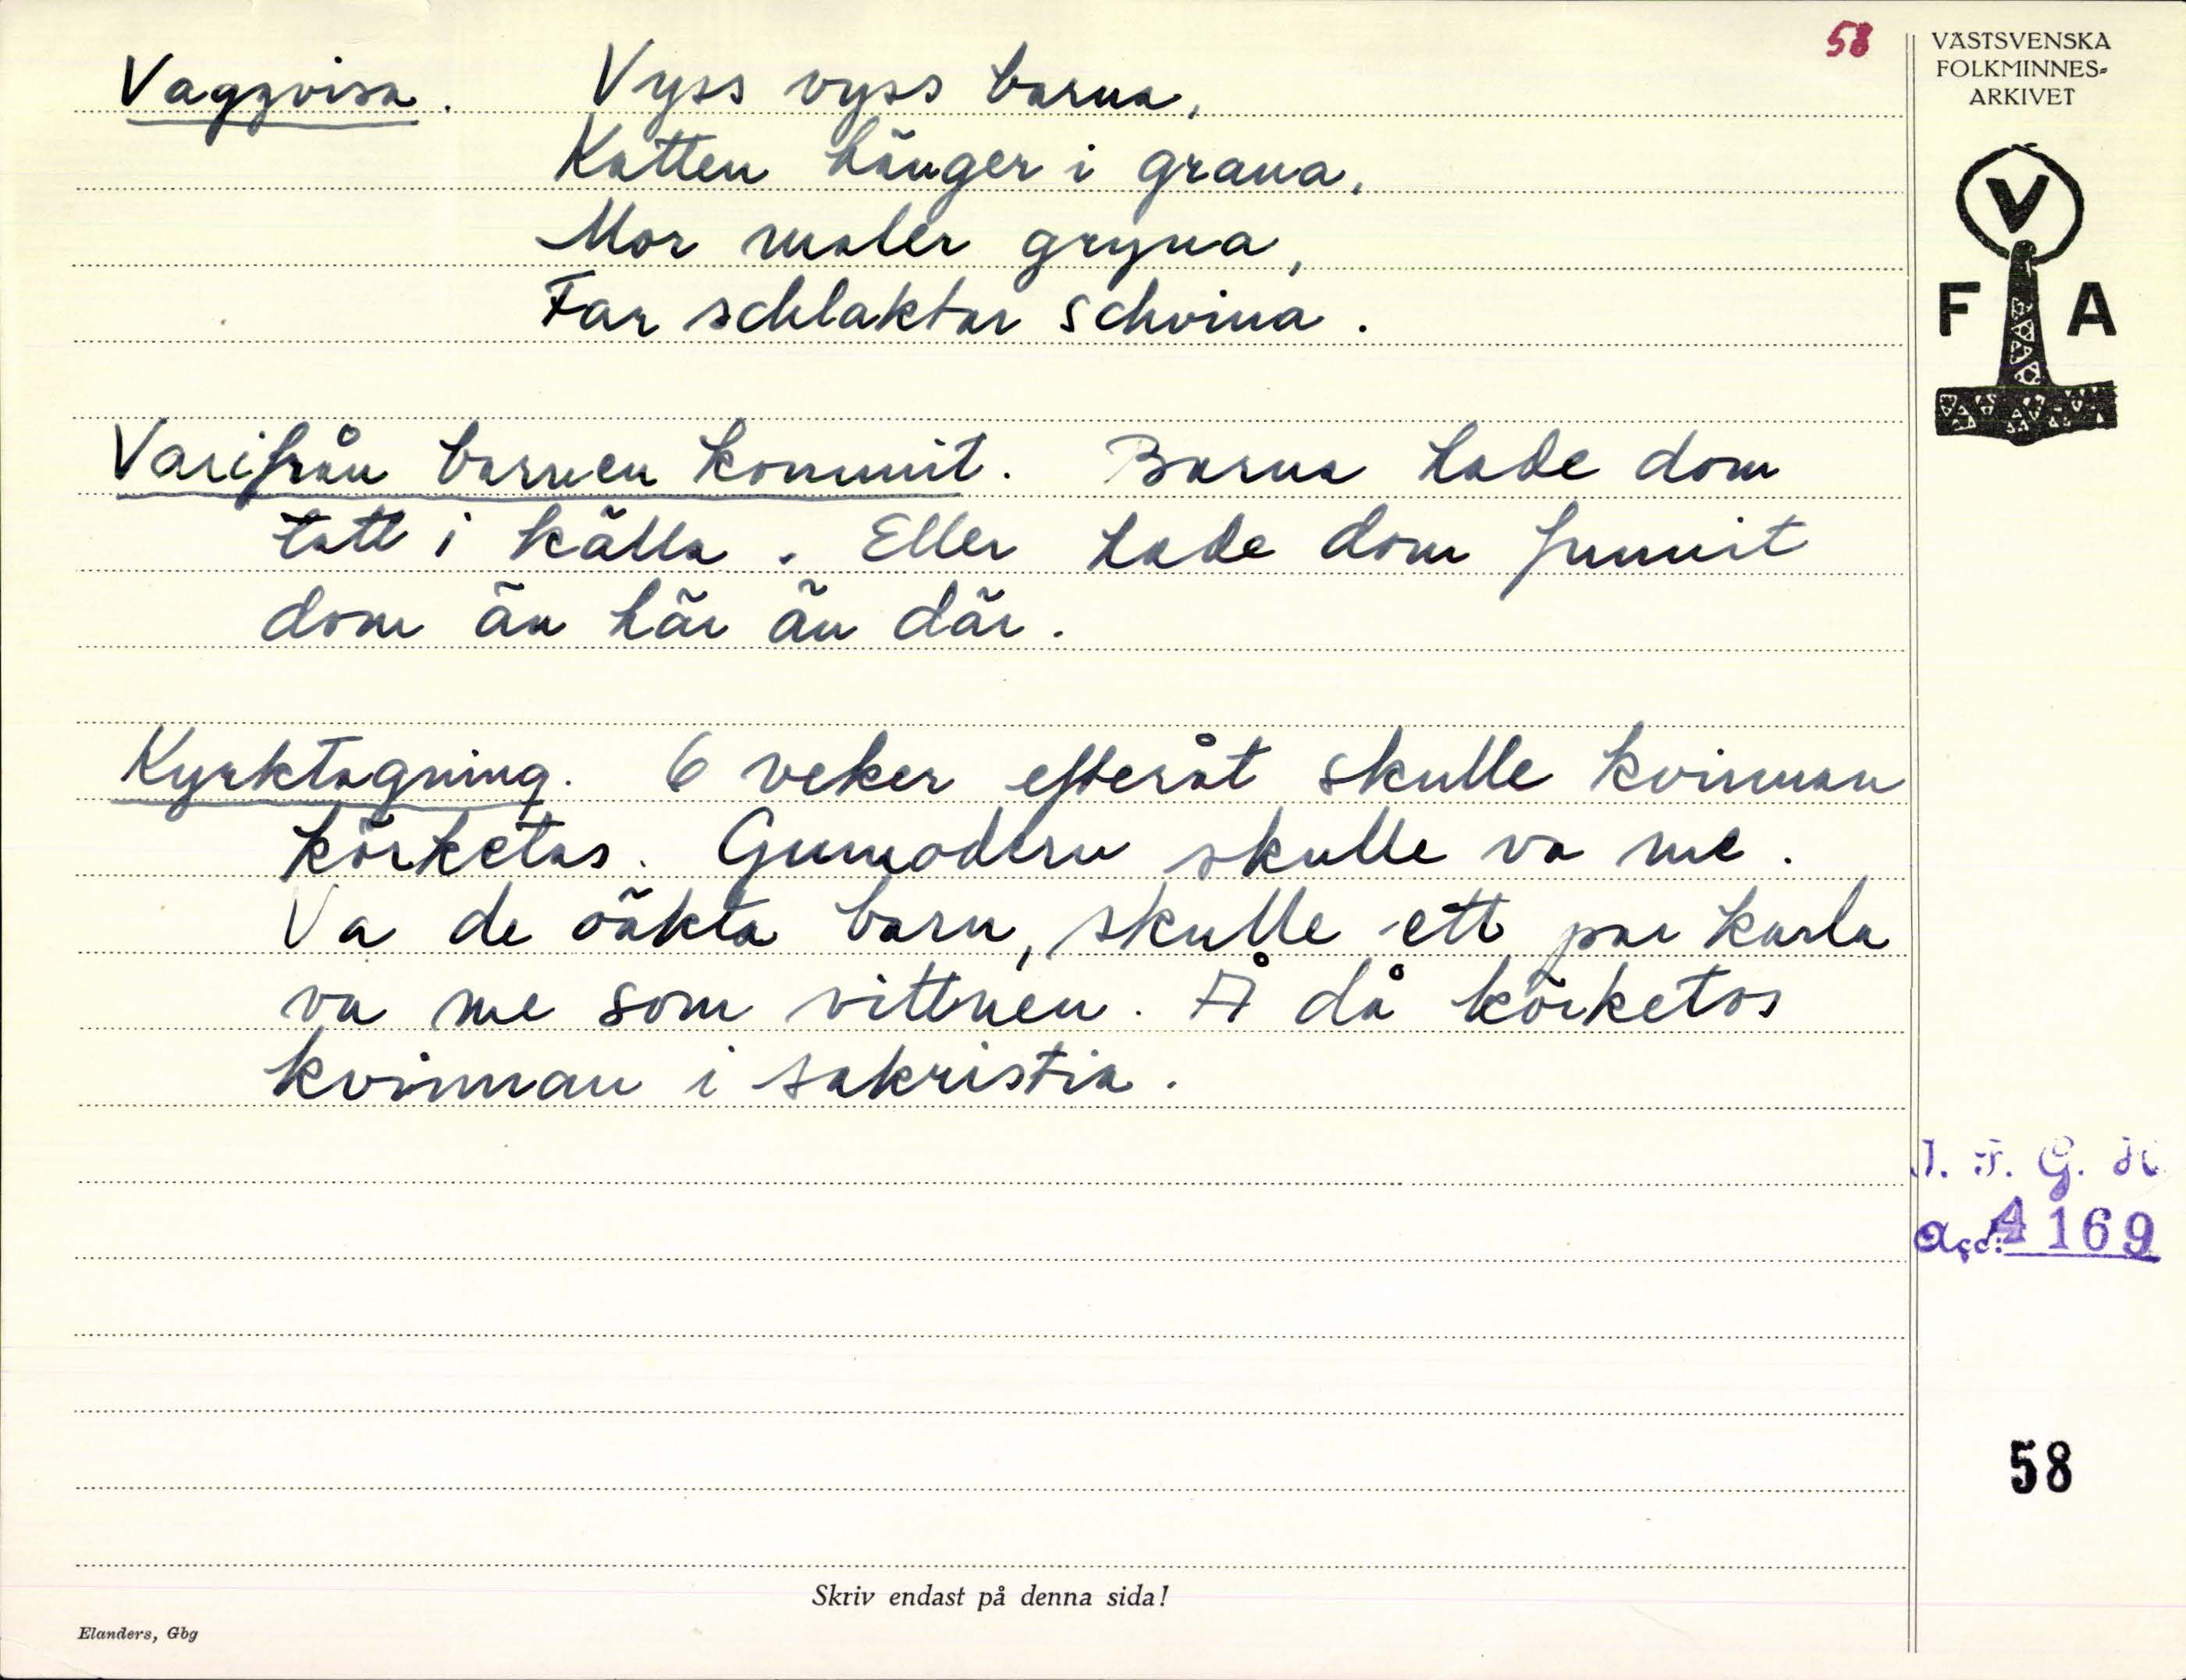 58
VÄSTSVENSKA
FOLKMINNES-
ARKIVET
Vaggvisa. Vyss vyss barna,
Katten hänger i grana,
Mor maler gryna,
Far schlaktar schvina.
V
F A
Varifrån barnen kommit. Barna hade dom
tatt i källa. Eller hade dom funnit
dom än här än där.
Kyrktagning. 6 veker efteråt skulle kvinnan
körketas. Gumodern skulle va me.
Va de oäkta barn, skulle ett par karla
va me som vittnen. Å då körketos
kvinnan i sakristia.
I. F. G. H.
Acc: 4169
58
Skriv endast på denna sida!
Elanders, Gbg